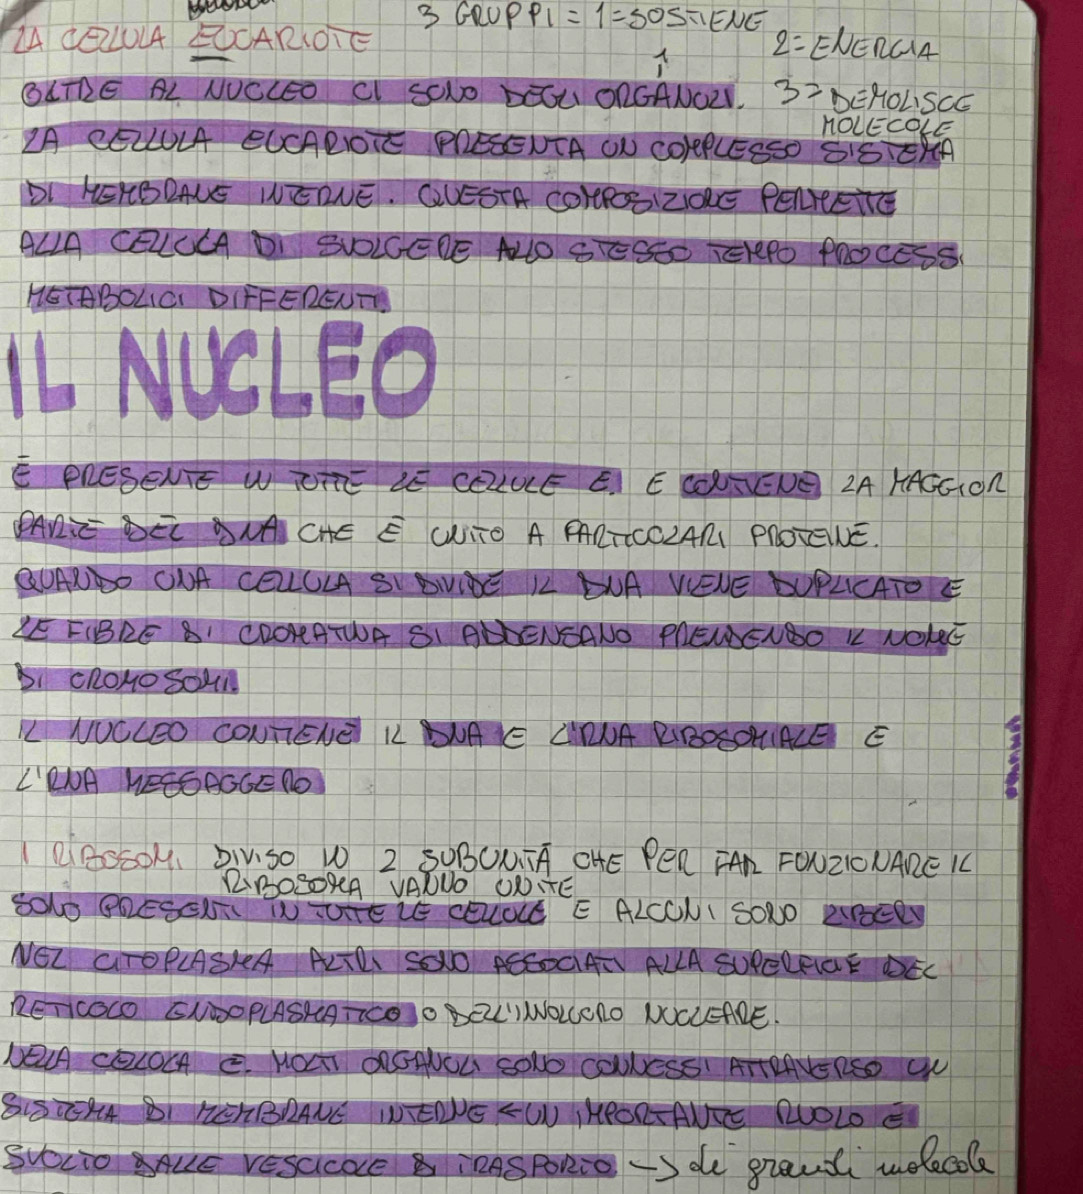 3 GRUPPI = 1=SOSTIENE
LA CELLULA EUCARIOTE
2=ENERGIA
1
OLTRE AL NUCLEO CI SONO DEGLI ORGANULI.
3=DEMOLISCE
MOLECOLE
LA CELLULA EUCARIOTE PRESENTA UN COMPLESSO SISTEMA
DI MEMBRANE INTERNE. QUESTA COMPOSIZIONE PERMETTE
ALLA CELLULA DI SVOLGERE ALLO STESSO TEMPO PROCESSI
METABOLICI DIFFERENTI.
IL NUCLEO
È PRESENTE IN TUTTE LE CELLULE E. E CONTIENE LA MAGGIOR
PARTE DEL DNA CHE È UNITO A PARTICOLARI PROTEINE.
QUANDO UNA CELLULA SI DIVIDE IL DNA VIENE DUPLICATO E
LE FIBRE DI CROMATINA SI ADDENSANO PRENDENDO IL NOME
DI CROMOSOMI.
IL NUCLEO CONTIENE IL DNA E L'RNA RIBOSOMIALE E
L'RNA MESSAGGERO
I RIBOSOMI DIVISO IN 2 SUBUNITÀ CHE PER FAR FUNZIONARE IL
RIBOSOMA VANNO UNITE
SONO PRESENTI IN TUTTE LE CELLULE E ALCUNI SONO LIBERI
NEL CITOPLASMA ALTRI SONO ASSOCIATI ALLA SUPERFICIE DEL
RETICOLO ENDOPLASMATICO O DELL'INVOLUCRO NUCLEARE.
NELLA CELLULA E. MOLTI ORGANULI SONO CONNESSI ATTRAVERSO UN
SISTEMA DI MEMBRANE INTERNE < UN IMPORTANTE RUOLO È
SVOLTO DALLE VESCICOLE DI TRASPORTO -> di grandi molecole